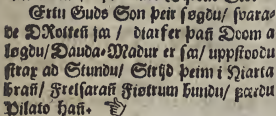 Ertu Guds Son þeir søgdu / svara-
de DRotteñ ja / diarfer þañ Doom a
løgdu / Dauda-Madur er sa / uppstoodu
strax ad Stundu / Strijd þeim i Hiarta
brañ / Frelsarañ Fiøtrum bundu / færdu
Pilato hañ.